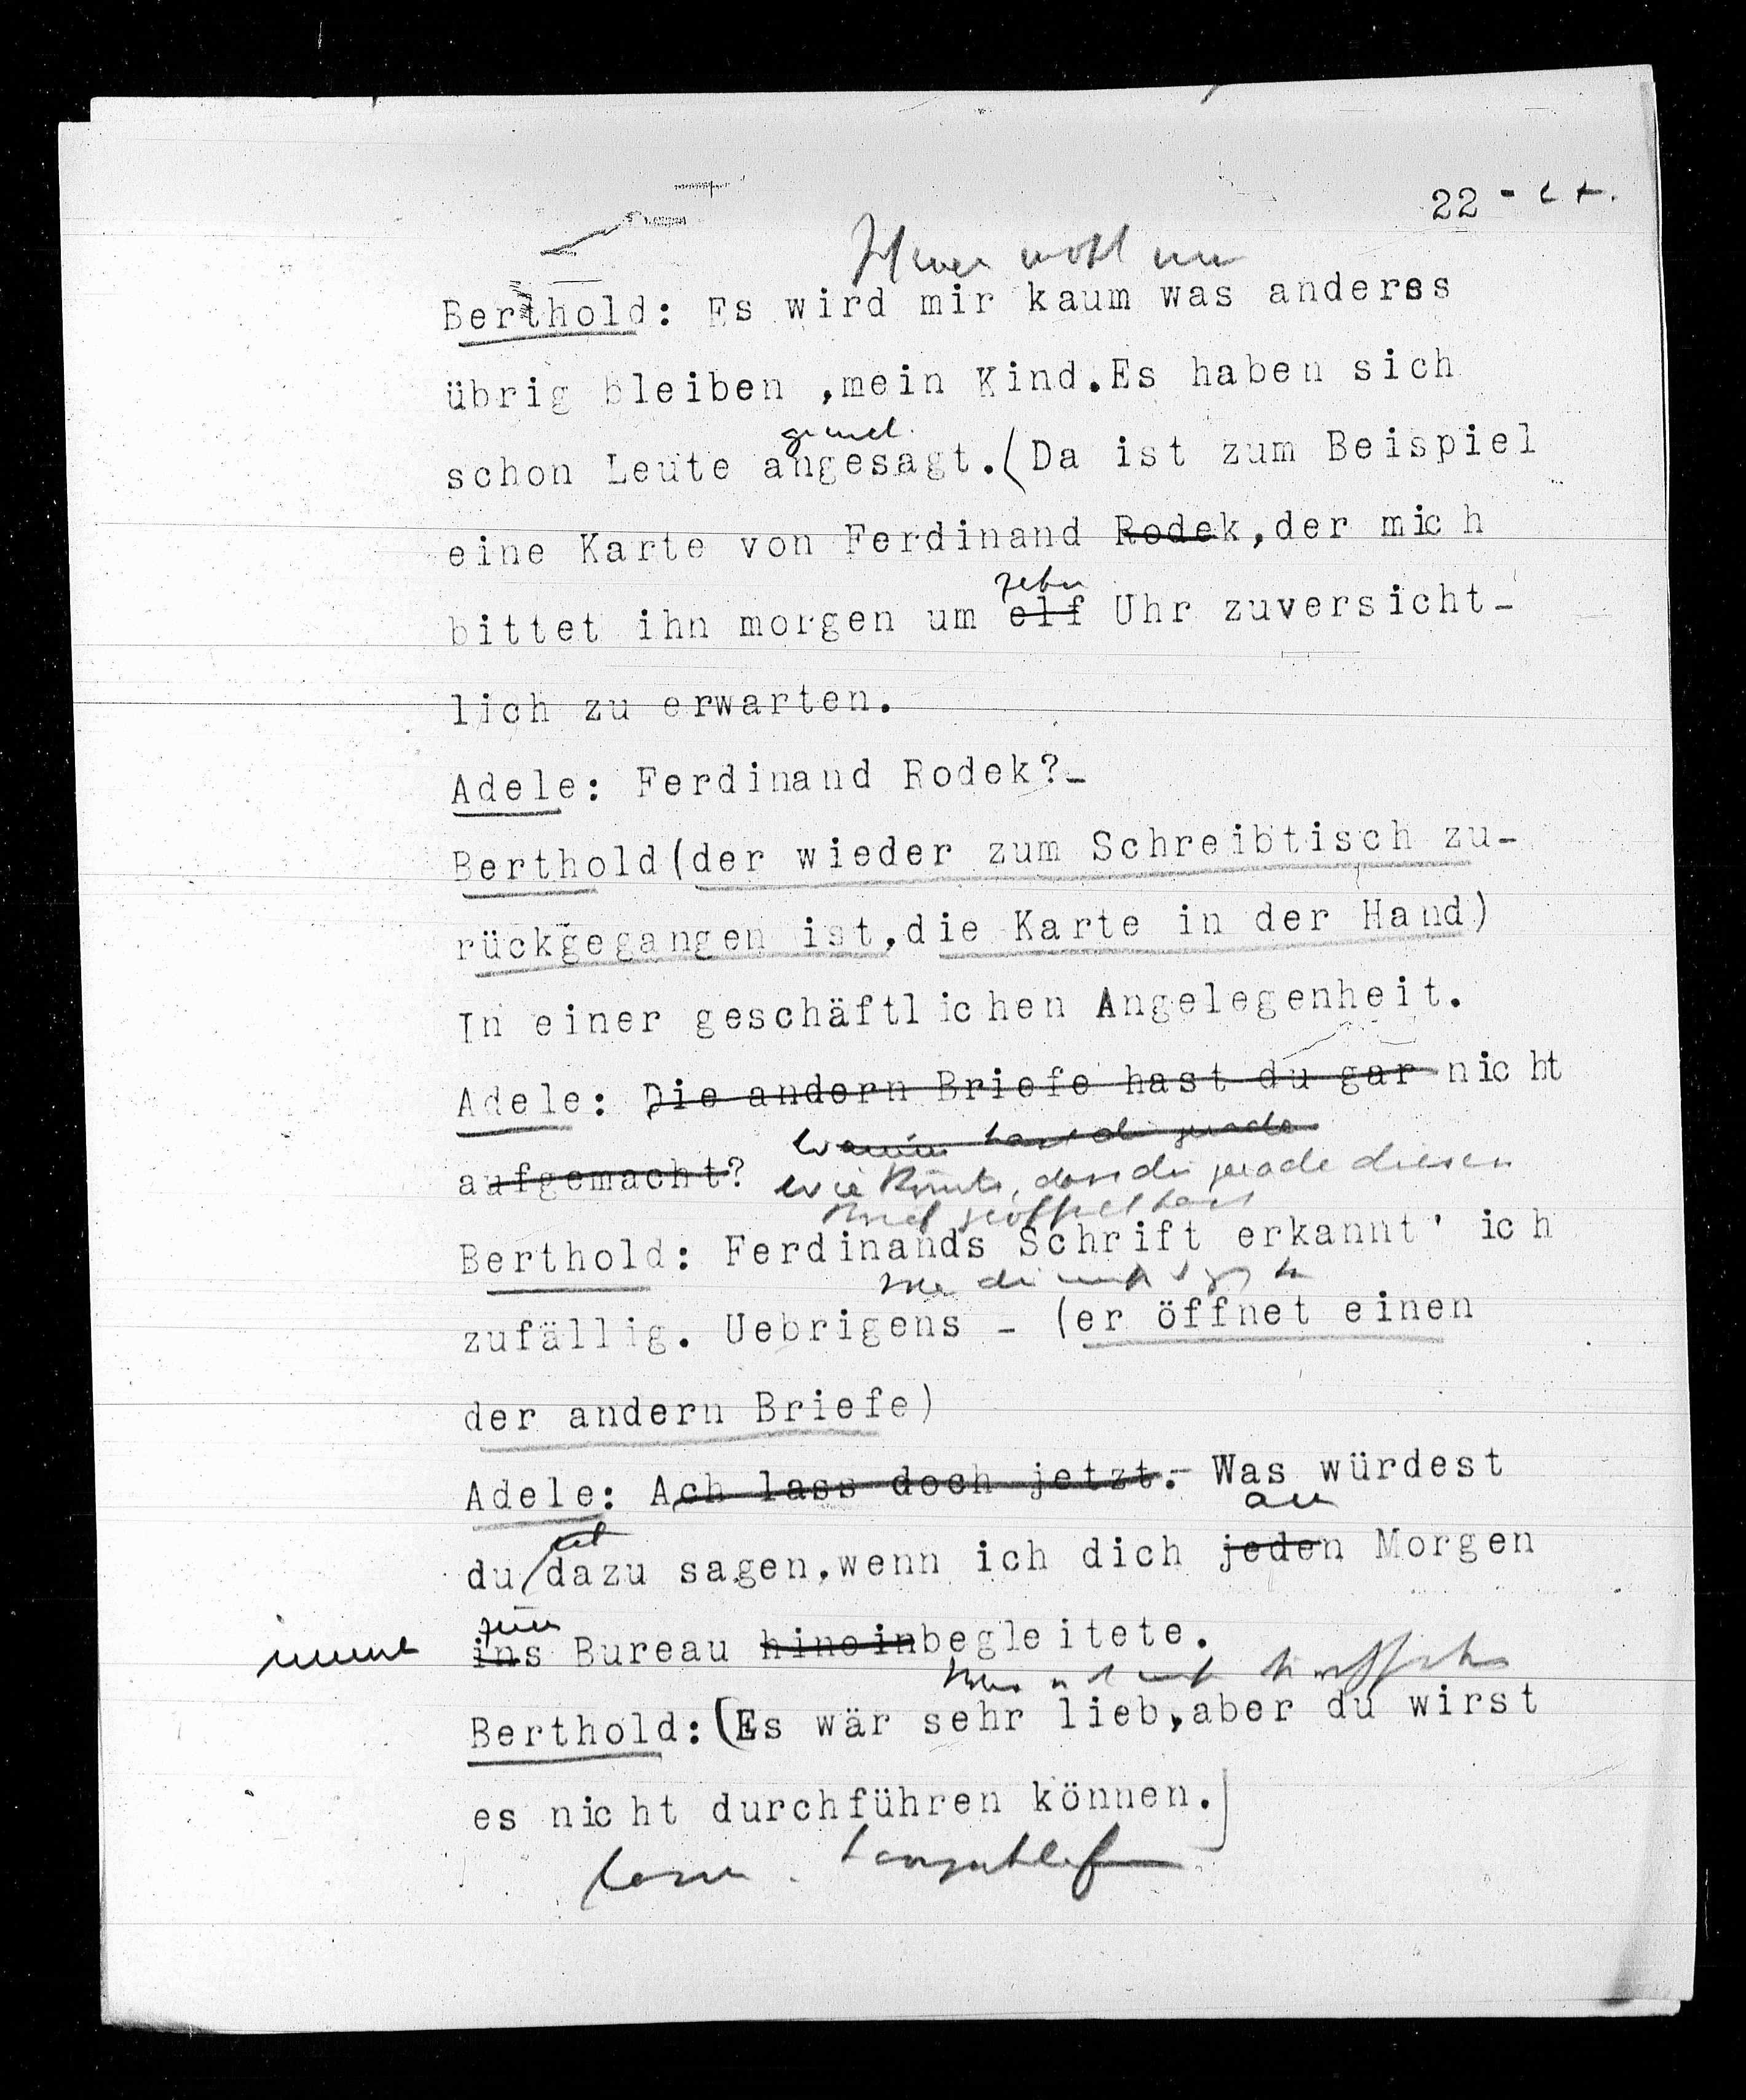 22 -
Berthold: Es wird mir kaum was anderes
übrig bleiben ,mein Kind.Es haben sich
schon Leute angesagt.(Da ist zum Beispiel
eine Karte von Ferdinand Rodek,der mich
zehn
bittet ihn morgen um elf Uhr zuversicht-
lich zu erwarten.
Adele: Ferdinand Rodek?-
Berthold(der wieder zum Schreibtisch zu-
rückgegangen ist,die Karte in der Hand)
In einer geschäftlichen Angelegenheit.
Adele: Die andern Briefe hast du gar nicht
Warum hast du gerade
aufgemacht? Wie kommts, dass du gerade diesen
Brief geöffnet hast
Berthold: Ferdinands Schrift erkannt' ich
zufällig. Uebrigens - (er öffnet einen
der andern Briefe)
Adele: Ach lass doch jetzt.- Was würdest
du dazu sagen,wenn ich dich jeden Morgen
zum
ins Bureau hineinbegleitete.
Berthold:(Es wär sehr lieb,aber du wirst
es nicht durchführen können.)